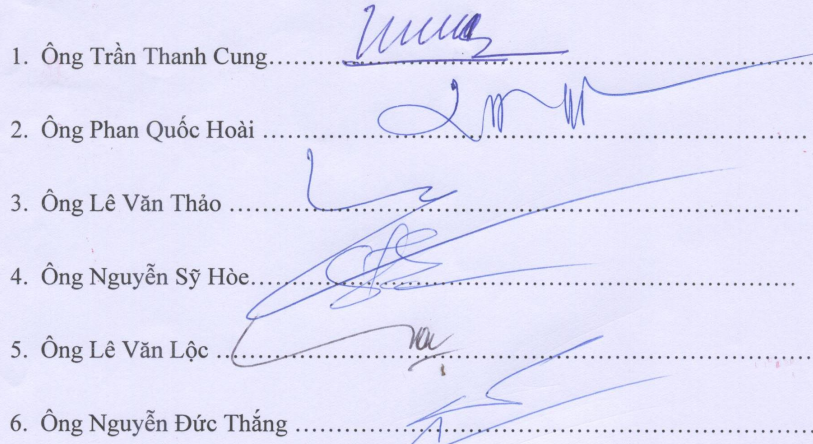 1. Ông Trần Thanh Cung
2. Ông Phan Quốc Hoài
3. Ông Lê Văn Thảo
4. Ông Nguyễn Sỹ Hòe
5. Ông Lê Văn Lộc
6. Ông Nguyễn Đức Thắng